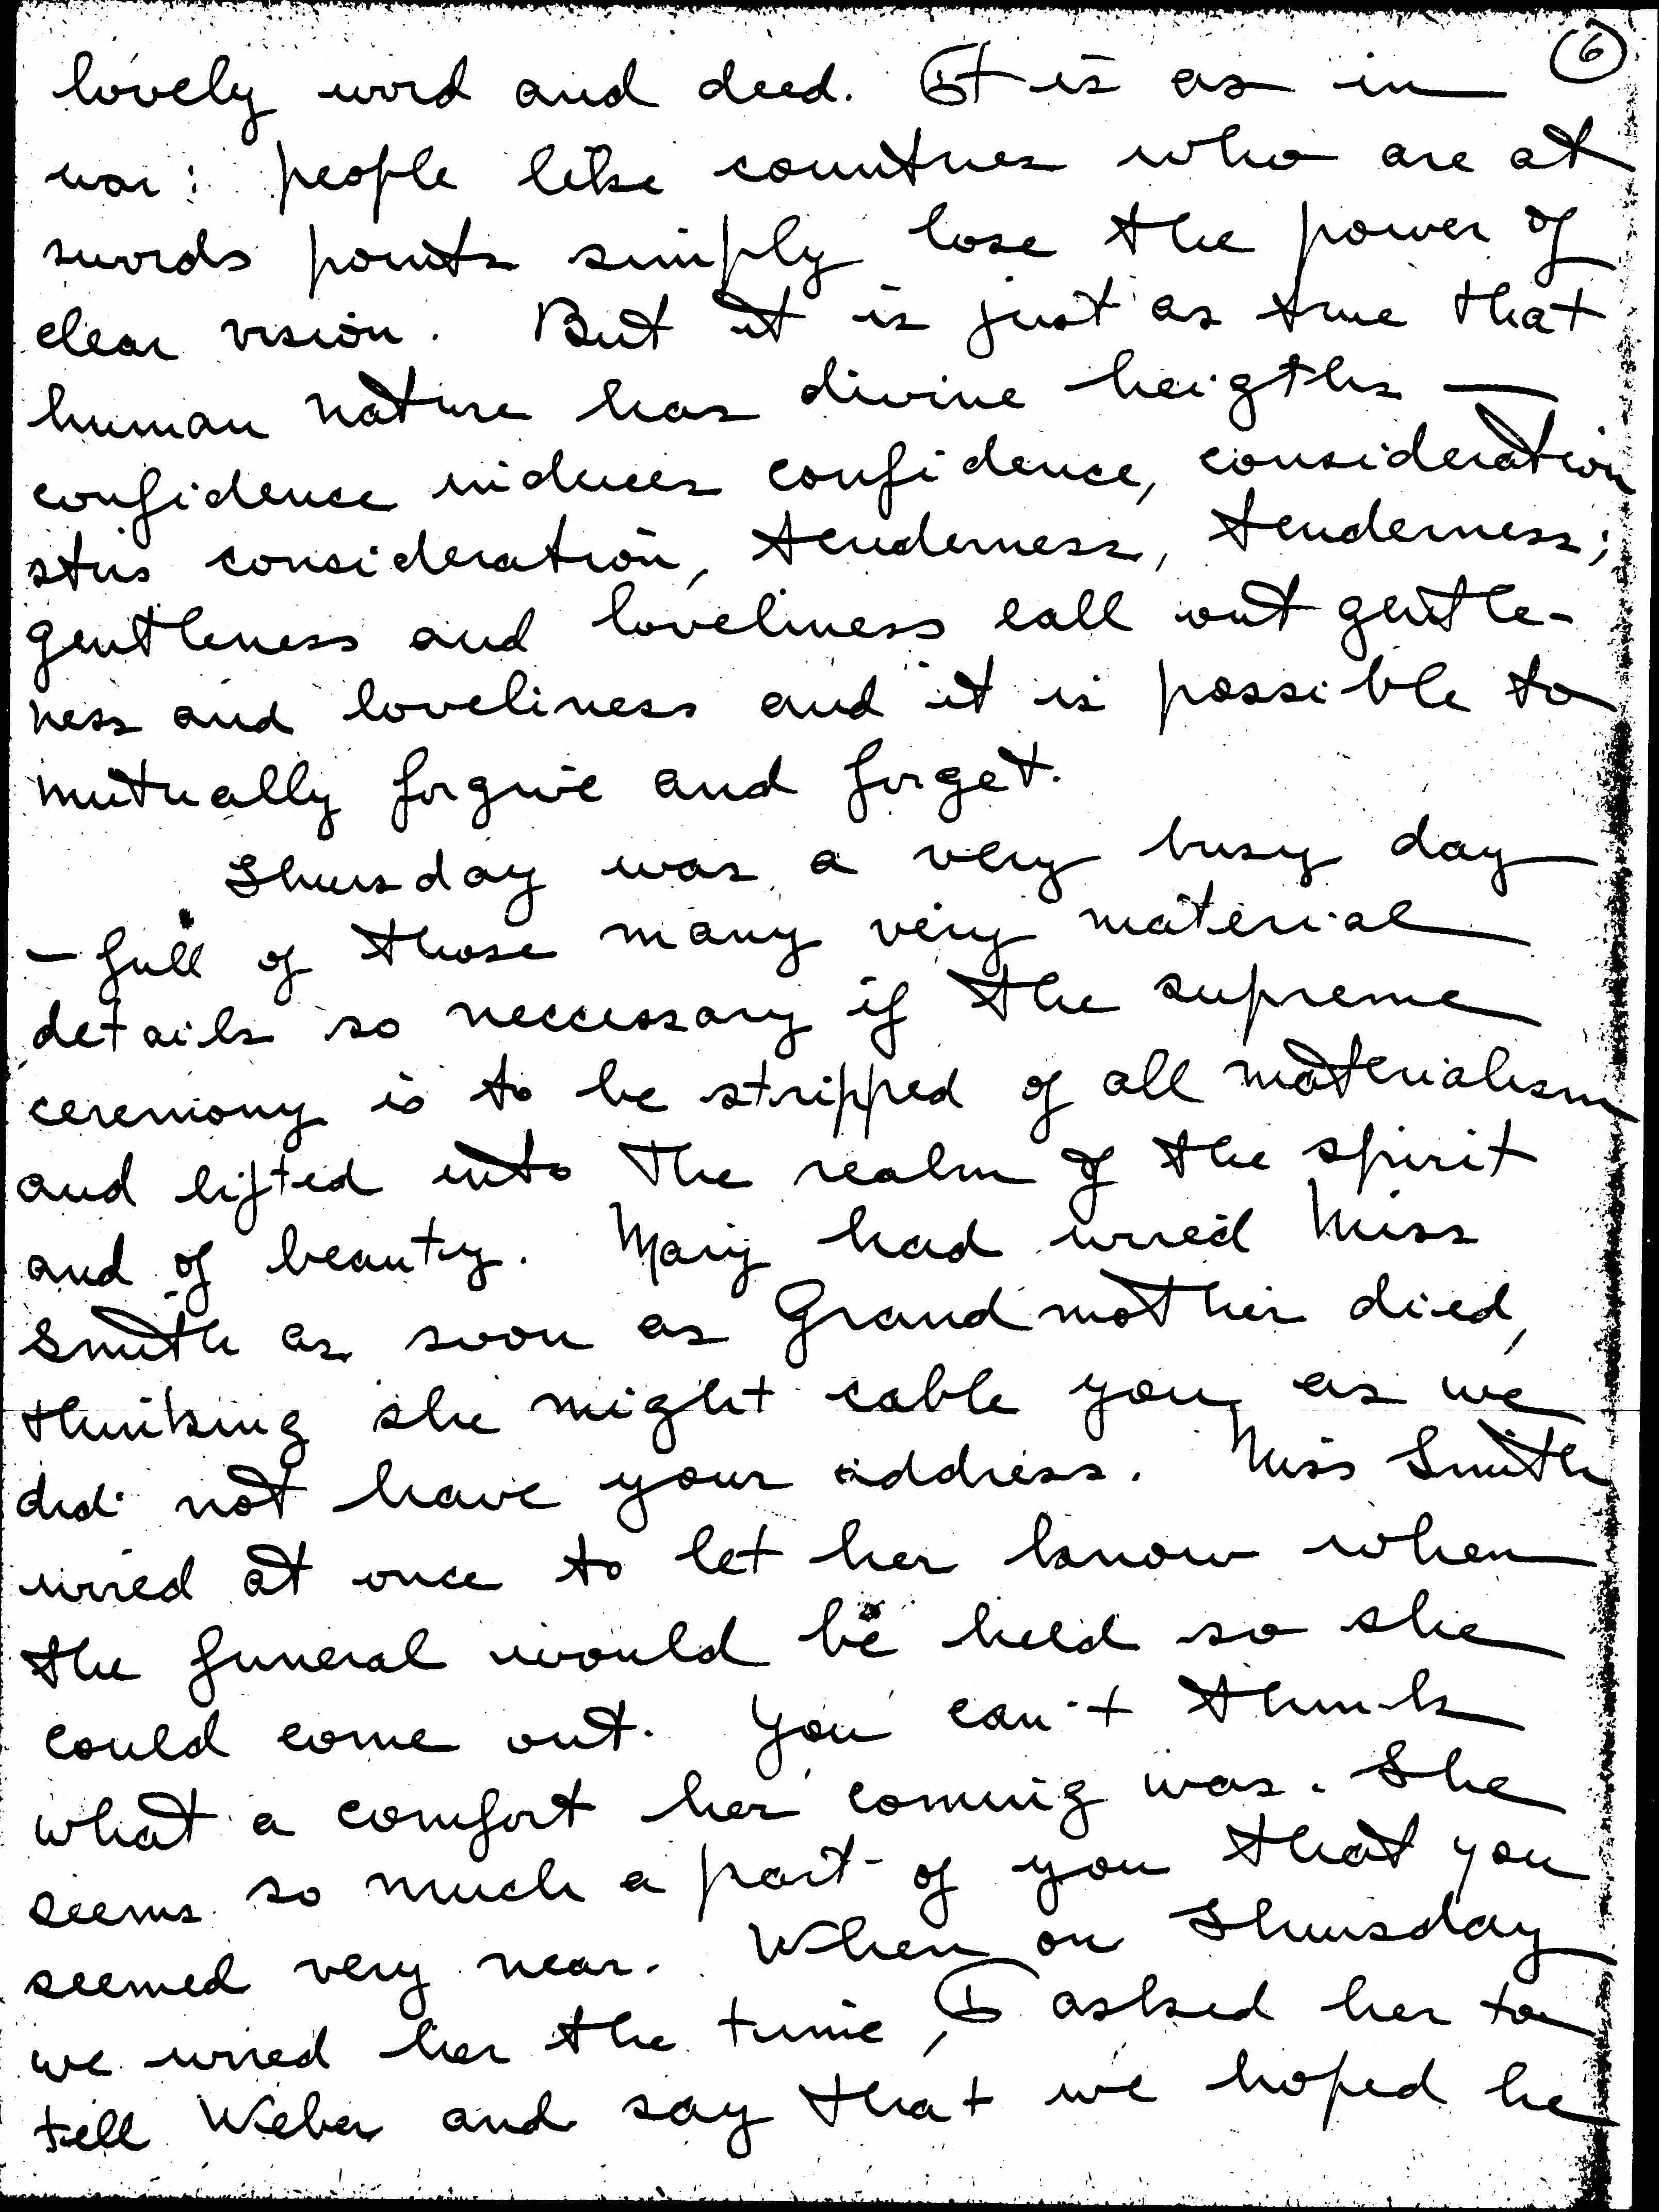 6
lovely word and deed. It is as in
war: people like countries who are at
swords points simply lose the power of
clear vision. But it is just as true that
human nature has divine heigths —
confidence induces confidence, consideration
stirs consideration, tenderness, tenderness;
gentleness and loveliness call out gentle-
ness and loveliness and it is possible to
mutually forgive and forget.
Thursday was a very busy day
— full of those many very material
details so neccessary if the supreme
ceremony is to be stripped of all materialism
and lifted into the realm of the spirit
and of beauty. Mary had wired Miss
Smith as soon as Grandmother died,
thinking she might cable you, as we
did not have your address. Miss Smith
wired at once to let her know when
the funeral would be held so she
could come out. You can't think
what a comfort her coming was. She
seems so much a part of you that you
seemed very near. When on Thursday
we wired her the time, I asked her to
tell Weber and say that we hoped he